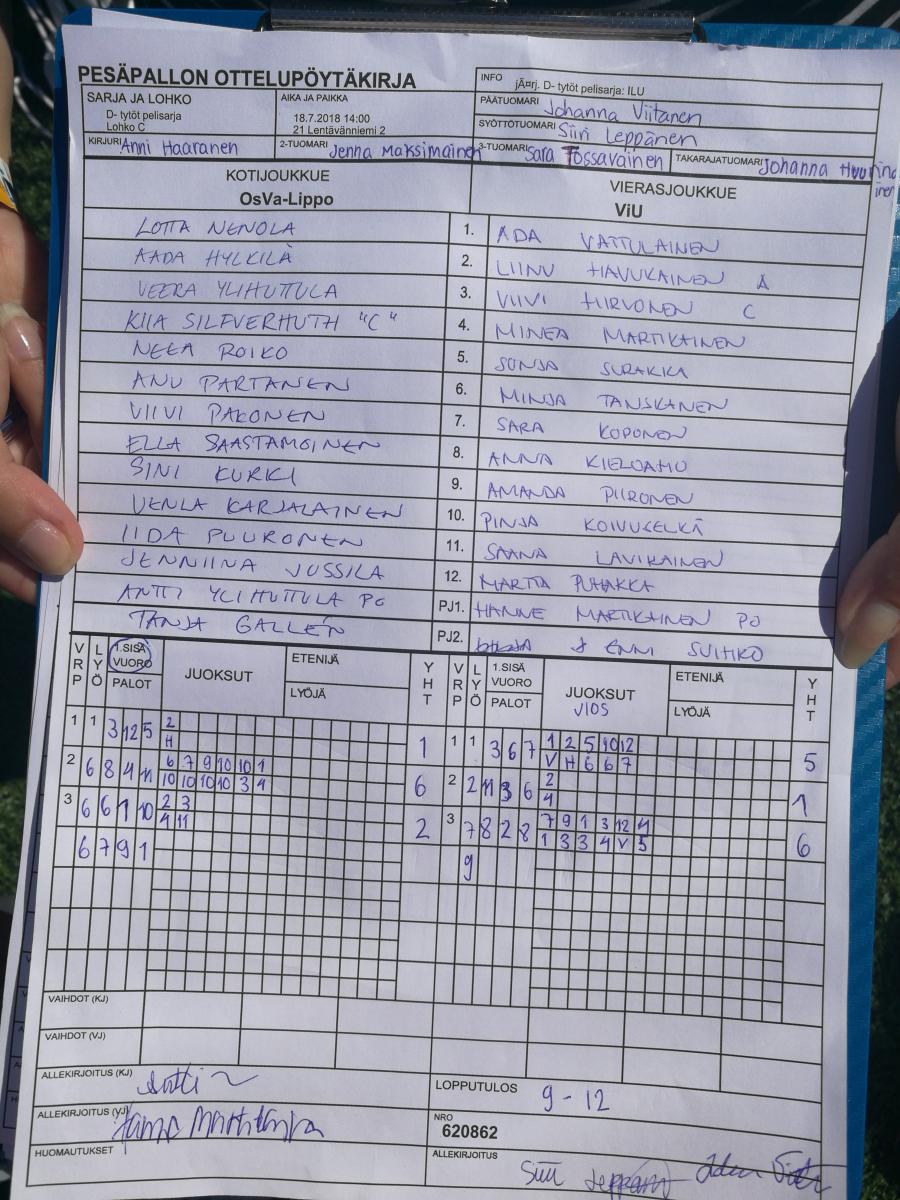 PESÄPALLON OTTELUPÖYTÄKIRJA
INFO jÃ¤rj. D- tytöt pelisarja: ILU
SARJA JA LOHKO
D- tytöt pelisarja
Lohko C
AIKA JA PAIKKA
18.7.2018 14:00
21 Lentävänniemi 2
PÄÄTUOMARI Johanna Viitanen
SYÖTTÖTUOMARI Siiri Leppänen
KIRJURI Anni Haaranen
2-TUOMARI Jenna Maksimainen
3-TUOMARI Sara Tossavainen
TAKARAJATUOMARI Johanna
KOTIJOUKKUE
OsVa-Lippo
VIERASJOUKKUE
ViU
LOTTA NENOLA 1. ADA VATTULAINEN
AADA HYLKILÄ 2. LIINU HAVUKAINEN A
VEERA YLIHUTTULA 3. VIIVI HIRVONEN C
KIIA SILFVERHUTH "C" 4. MINEA MARTIKAINEN
NEEA ROIKO 5. SONJA SURAKKA
ANU PARTANEN 6. MINJA TANSKANEN
VIIVI PAKONEN 7. SARA KOPONEN
ELLA SAASTAMOINEN 8. ANNA KIELOAHO
SINI KURKI 9. AMANDA PIIRONEN
VENLA KARJALAINEN 10. PINJA KOIVUKELKÄ
IIDA PUURONEN 11. SAANA LAVIKAINEN
JENNIINA JUSSILA 12. MARTTA PUHAKKA
ANTTI YLIHUTTULA PO PJ1. HANNE MARTIKAINEN PO
TANJA GALLÉN PJ2. ENNI SUIHKO
VRP LYÖ 1.SISÄ VUORO PALOT JUOKSUT ETENIJÄ LYÖJÄ YHT VRP LYÖ 1.SISÄ VUORO PALOT JUOKSUT VIOS ETENIJÄ LYÖJÄ YHT
1 1 3 12 5 2 1 1 1 3 6 7 1 2 5 10 12 5
H V H 6 6 7
2 6 8 4 11 6 7 9 10 10 1 6 2 2 11 3 6 2 1
10 10 10 10 3 4 4
3 6 6 1 10 2 3 2 3 7 8 2 8 7 9 1 3 12 4 6
4 11 1 3 3 4 V 5
6 7 9 1 9
VAIHDOT (KJ)
VAIHDOT (VJ)
ALLEKIRJOITUS (KJ) Antti
LOPPUTULOS 9 - 12
ALLEKIRJOITUS (VJ)
NRO
620862
HUOMAUTUKSET
ALLEKIRJOITUS Siiri Leppänen